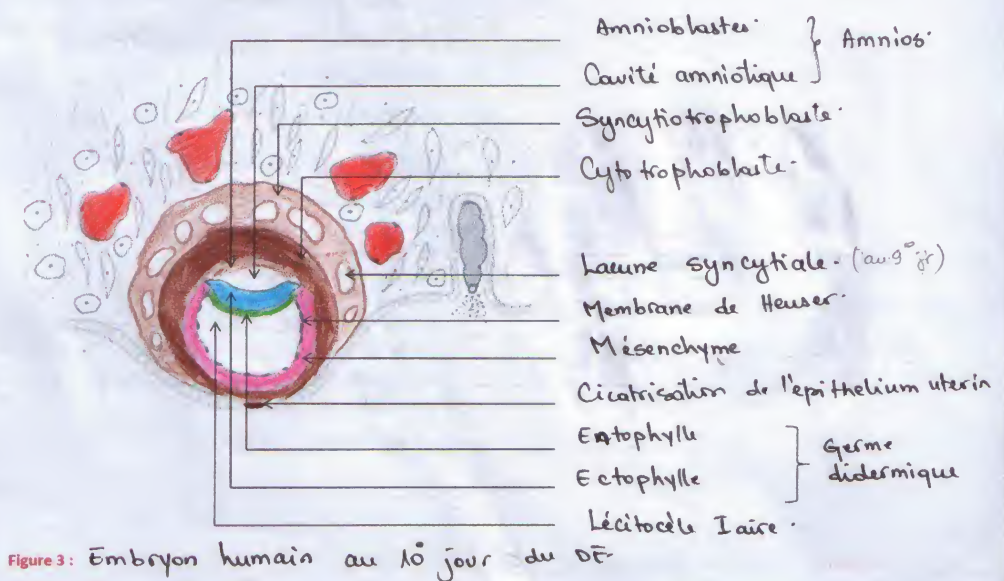 Amnioblastes.
Amnios.
Cavité amniotique
Syncytiotrophoblaste.
Cytotrophoblaste.
Lacune syncytiale. (au 9° jr)
Membrane de Heuser.
Mésenchyme
Cicatrisation de l'epithelium uterin
Entophylle
Ectophylle
Germe
didermique
Lécitocèle Iaire.
Figure 3 : Embryon humain au 10° jour du DE